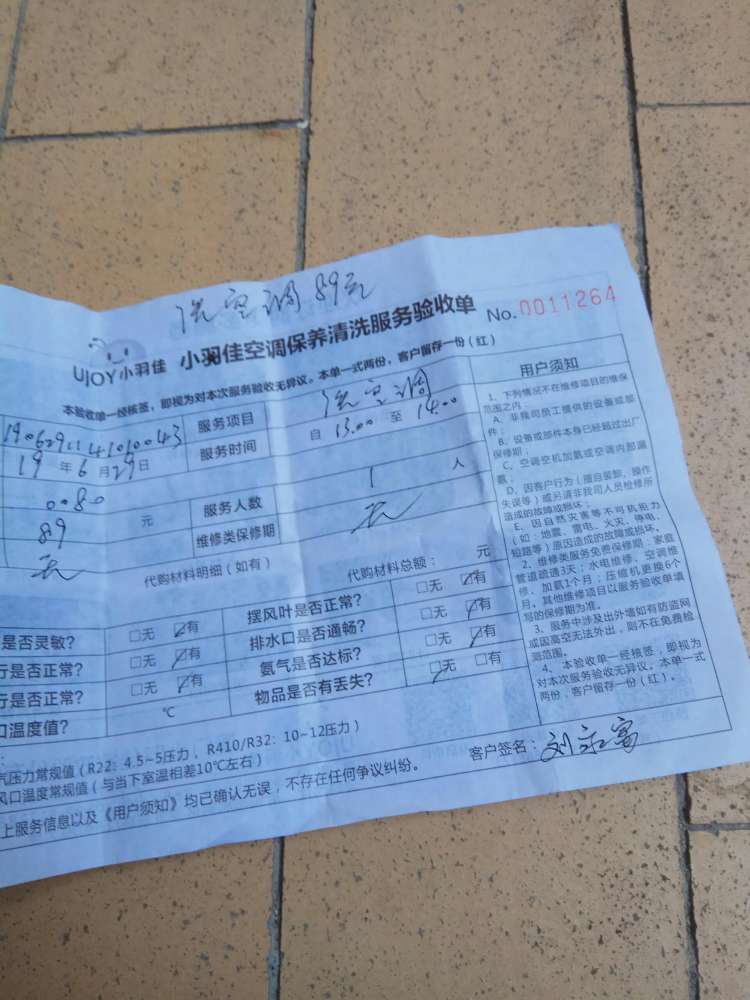 洗空调 89元
UJOY小羽佳 小羽佳空调保养清洗服务验收单 No.0011264
本验收单一经核签，即视为对本次服务验收无异议。本单一式两份，客户留存一份（红）
服务项目 洗空调
19年6月29日 服务时间 自 13.00 至 14.00
元 服务人数 1 人
89 维修类保修期 无
无 代购材料明细（如有） 代购材料总额： 元
是否灵敏？ □无 ☑有 摆风叶是否正常？ □无 ☑有
行是否正常？ □无 ☑有 排水口是否通畅？ □无 ☑有
行是否正常？ □无 ☑有 氨气是否达标？ □无 ☑有
口温度值？ ℃ 物品是否有丢失？ ☑无 □有
气压力常规值（R22：4.5~5压力，R410/R32：10~12压力）
风口温度常规值（与当下室温相差10℃左右）
上服务信息以及《用户须知》均已确认无误，不存在任何争议纠纷。 客户签名：刘永富
用户须知
1、下列情况不在维修项目的维保
范围之内：
A、非我司员工提供的设备或部
件；
B、设备或部件本身已经超过出厂
保修期；
C、空调空机加氨或空调内部漏
氨；
D、因客户行为（擅自装卸、操作
失误等）或另请非我司人员检修所
造成的故障或损坏；
E、因自然灾害等不可机拒力
（如：地震、雷电、火灾、停电、
短路等）原因造成的故障或损坏。
2、维修类服务免费保修期：家庭
管道疏通3天；水电维修、空调维
修、加氨1个月；压缩机更换6个
月，其他维修项目以服务验收单填
写的保修期为准。
3、服务中涉及出外墙如有防盗网
或因高空无法外出，则不在免费检
测范围。
4、本验收单一经核签，即视为
对本次服务验收无异议。本单一式
两份，客户留存一份（红）。